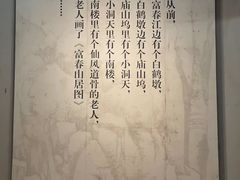 从前，
富春江边有个白鹤墩，
白鹤墩边有个庙山坞，
庙山坞里有个小洞天，
小洞天里有个南楼，
南楼里有个仙风道骨的老人，
老人画了《富春山居图》
……